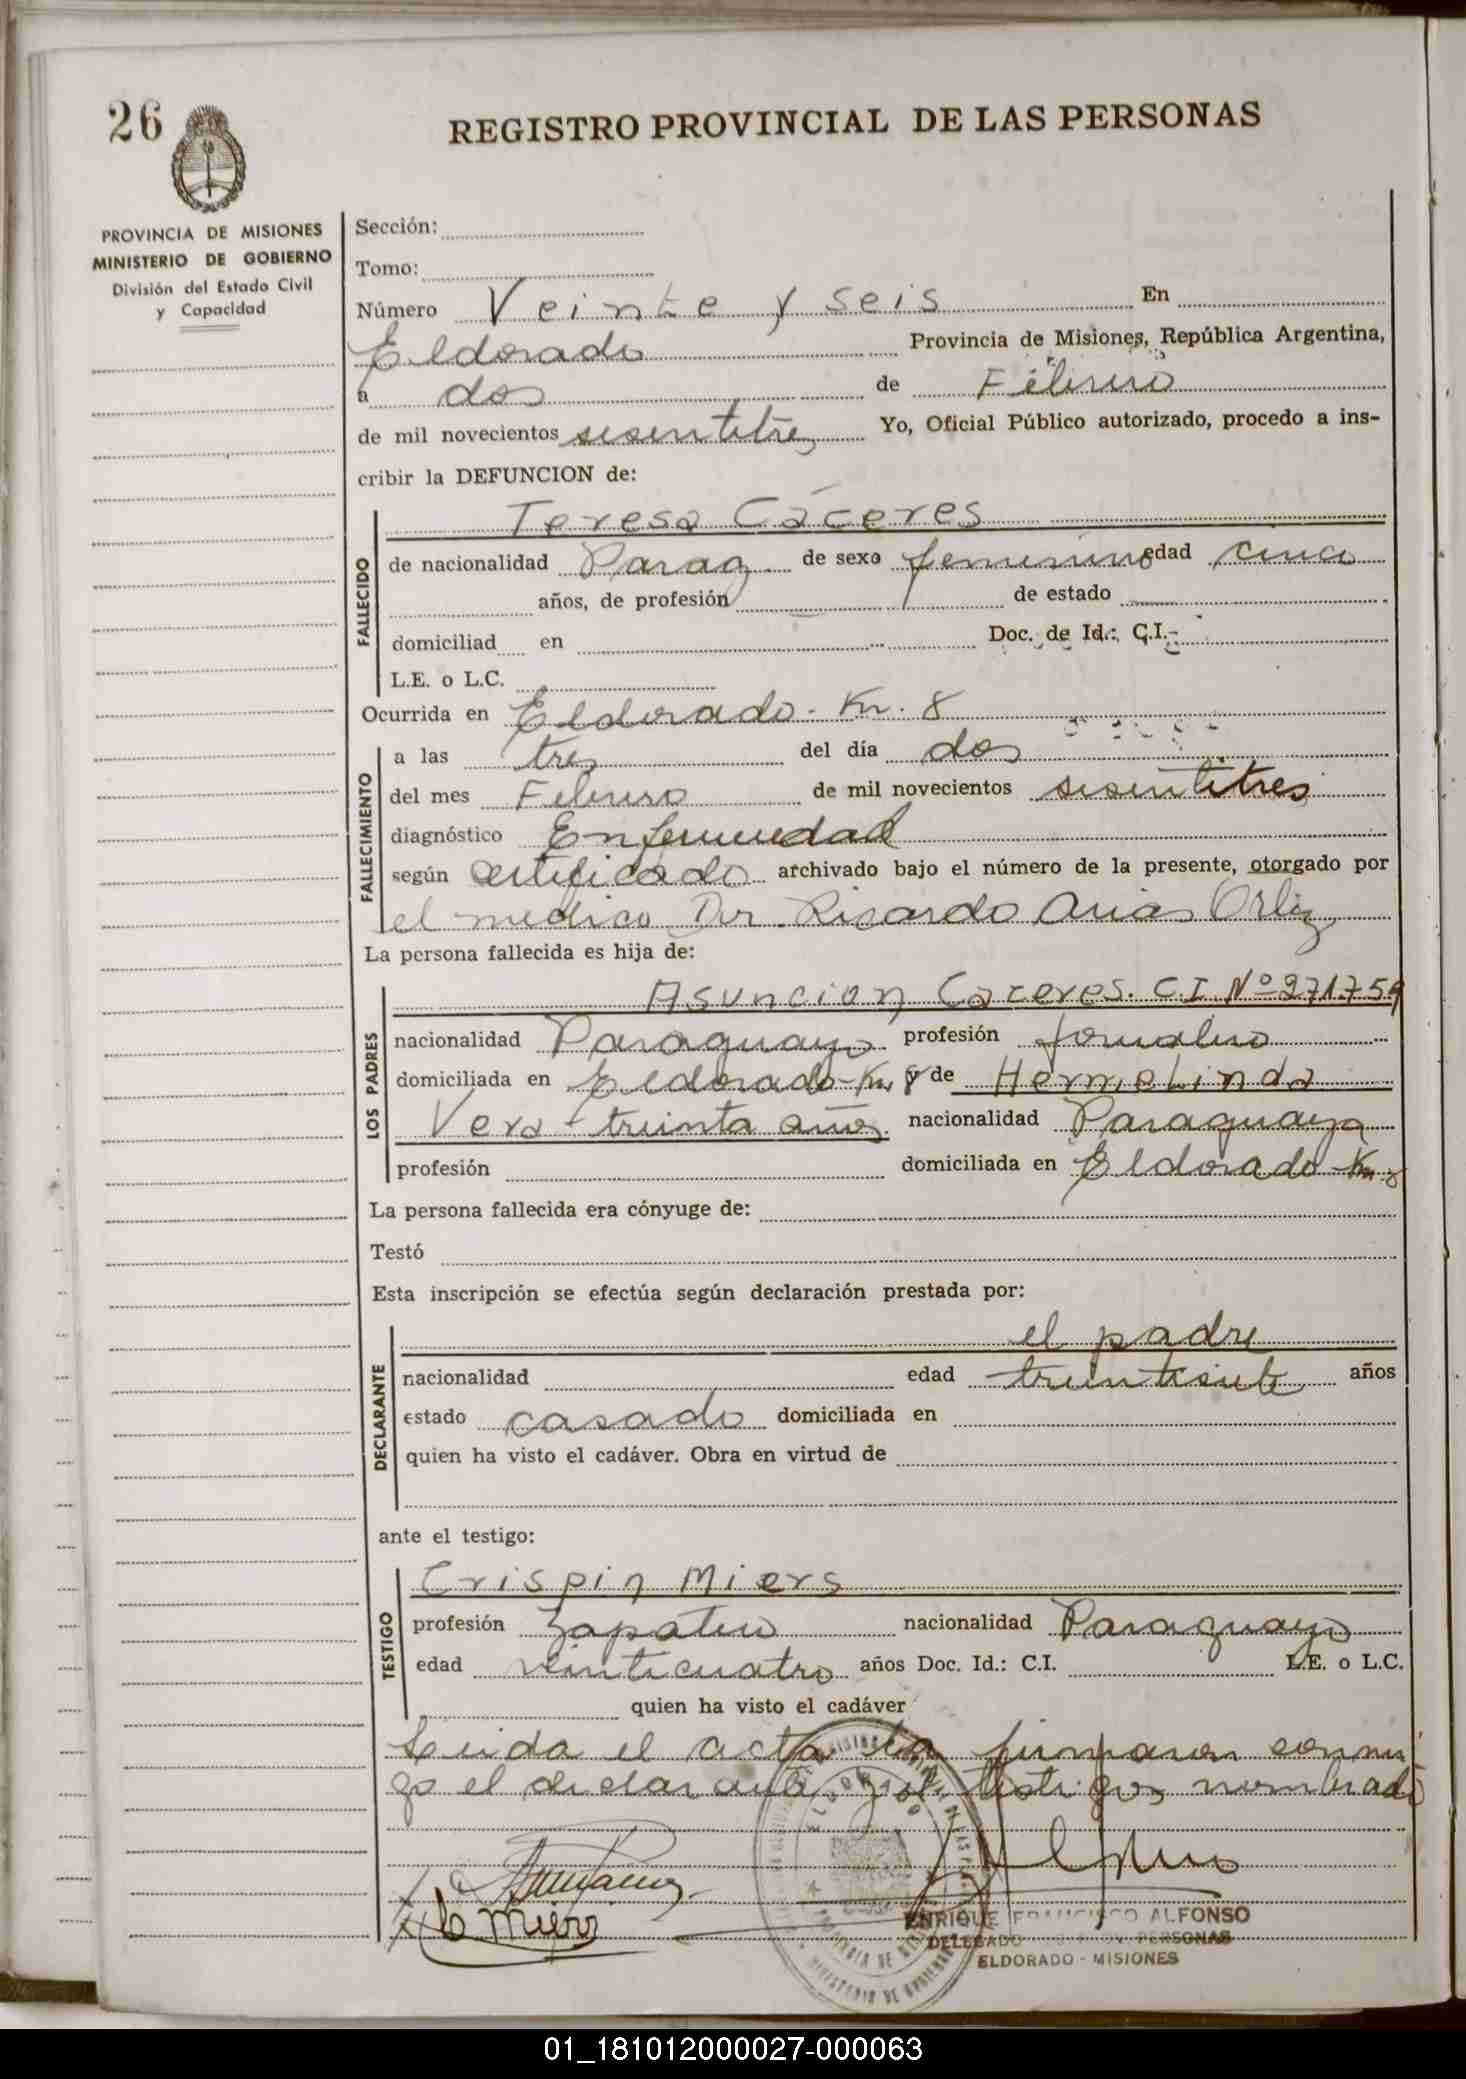 26
REGISTRO PROVINCIAL DE LAS PERSONAS
PROVINCIA DE MISIONES
MINISTERIO DE GOBIERNO
División del Estado Civil
y Capacidad
Sección:
Tomo:
Número Veinte y seis En
Eldorado Provincia de Misiones, República Argentina,
a dos de Febrero
de mil novecientos sesentitres Yo, Oficial Público autorizado, procedo a ins-
cribir la DEFUNCION de:
FALLECIDO
Teresa Cáceres
de nacionalidad Parag de sexo femenino edad cinco
años, de profesión de estado
domiciliad en Doc. de Id.: C.I.-
L.E. o L.C.
Ocurrida en Eldorado - Km. 8
FALLECIMIENTO
a las tres del día dos
del mes Febrero de mil novecientos sesentitres
diagnóstico Enfermedad
según certificado archivado bajo el número de la presente, otorgado por
el medico Dr. Ricardo Arias Ortiz
La persona fallecida es hija de:
LOS PADRES
Asuncion Caceres. C.I. Nº 271.759
nacionalidad Paraguayo profesión Jornalero
domiciliada en Eldorado-Km 8 y de Hermelinda
Vera - treinta años nacionalidad Paraguaya
profesión domiciliada en Eldorado-Km 8
La persona fallecida era cónyuge de:
Testó
Esta inscripción se efectúa según declaración prestada por:
DECLARANTE
el padre
nacionalidad edad treintisiete años
estado casado domiciliada en
quien ha visto el cadáver. Obra en virtud de
ante el testigo:
TESTIGO
Crispin Miers
profesión Zapatero nacionalidad Paraguayo
edad veinticuatro años Doc. Id.: C.I. L.E. o L.C.
quien ha visto el cadáver
Leida el acta la firmaron conmi
go el declarante y el testigos nombrado
C Miers
ENRIQUE FRANCISCO ALFONSO
DELEGADO PERSONAS
ELDORADO - MISIONES
01_181012000027-000063